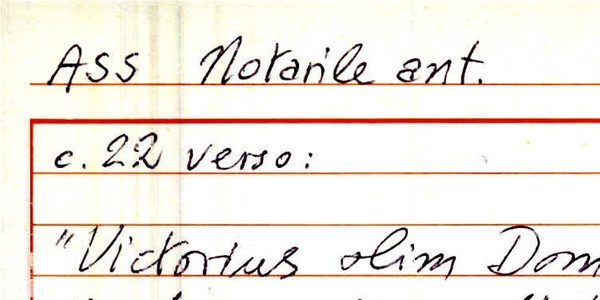 ASS Notarile ant.
c. 22 verso:
"Victorius olim Dom